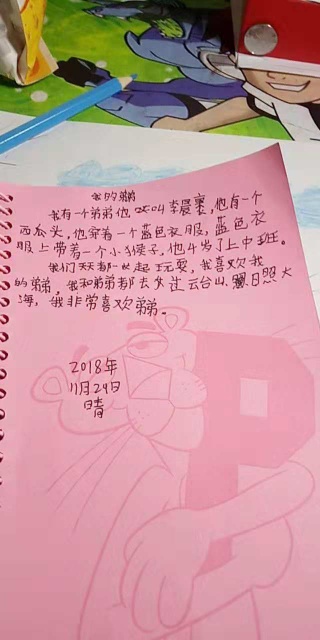 我的弟弟
我有一个弟弟他叫李晨，他有一个
西瓜头，他穿着一个蓝色衣服，蓝色衣
服上带着一个小猴子，他4岁了上中班。
我们天天都一起玩耍，我喜欢我
的弟弟，我和弟弟都去过云台山，日照大
海，我非常喜欢弟弟。
2018年
11月29日
晴